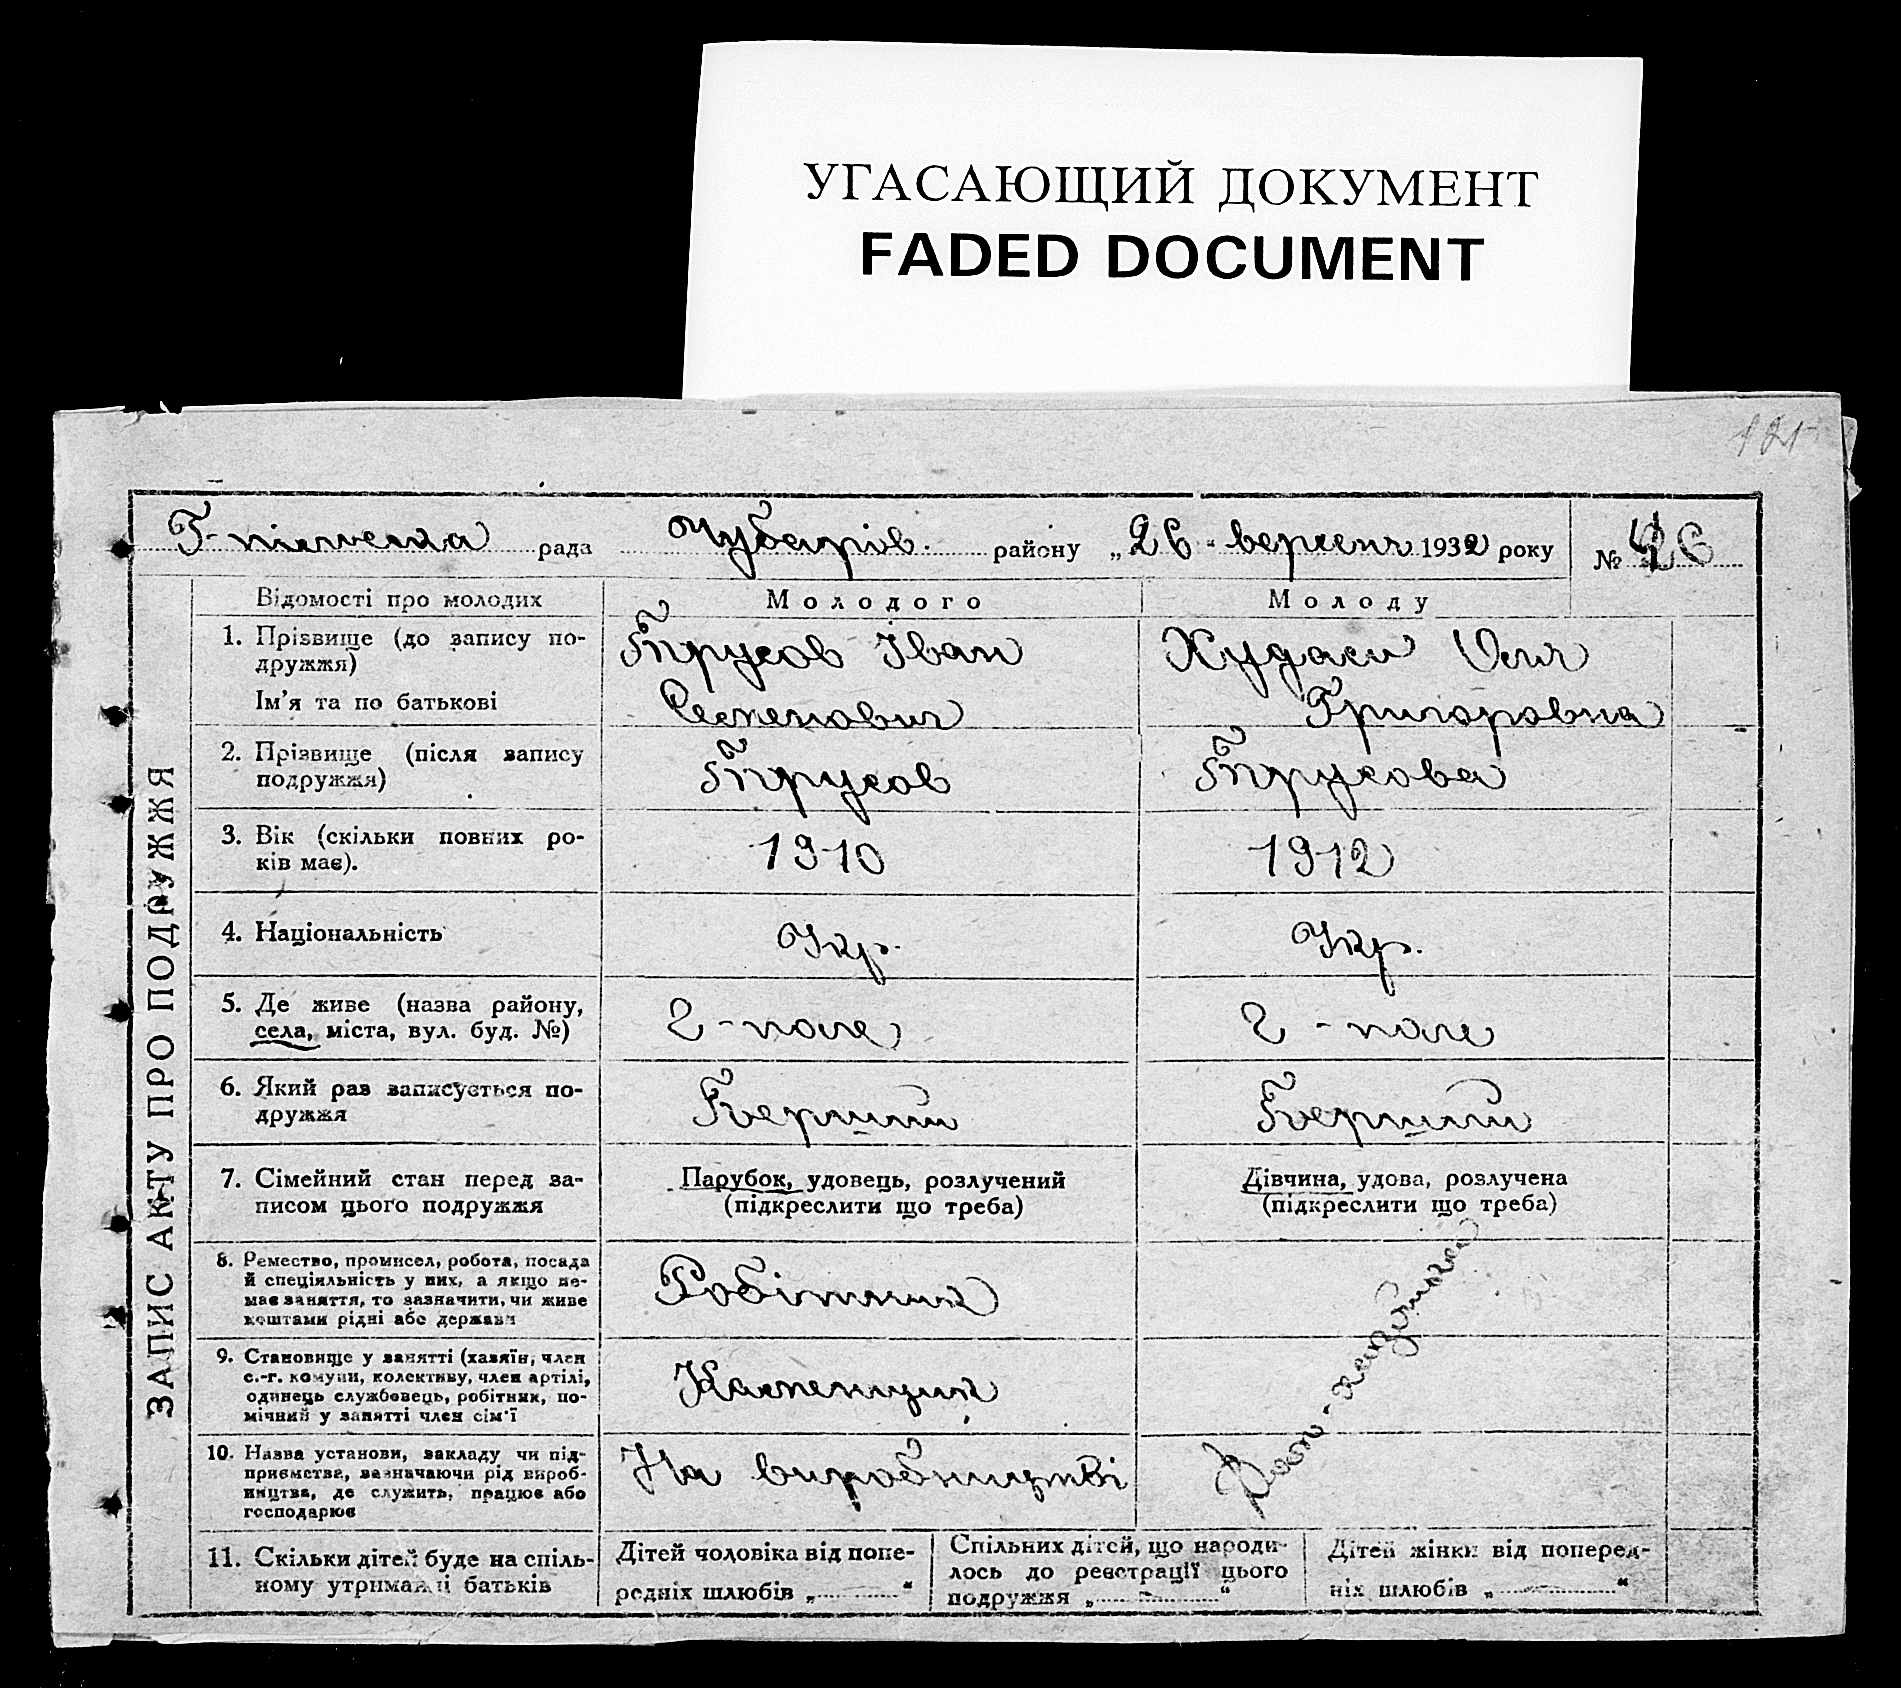 УГАСАЮЩИЙ ДОКУМЕНТ
FADED DOCUMENT
121
рада Чубарів. району „26" вересня 1932 року № 26
ЗАПИС АКТУ ПРО ПОДРУЖЖЯ
Відомості про молодих Молодого Молоду
1. Прізвище (до запису по-
дружжя)
Ім'я та по батькові
Прусов Іван
Семенович
Григоровна
2. Прізвище (після запису
подружжя)
Прусов
Прусова
3. Вік (скільки повних ро-
ків має).
1910
1912
4. Національність
Укр.
Укр.
5. Де живе (назва району,
села, міста, вул. буд. №)
Г-поле
Г-поле
6. Який раз записується по-
дружжя
Перший
Перший
7. Сімейний стан перед за-
писом цього подружжя
Парубок, удовець, розлучений
(підкреслити що треба)
Дівчина, удова, розлучена
(підкреслити що треба)
8. Ремество, промисел, робота, посада
й спеціяльність у них, а якщо не-
має заняття, то зазначити, чи живе
коштами рідні або держави
Робітник
9. Становище у занятті (хазяїн, член
с.-г. комуни, колективу, член артілі,
одинець службовець, робітник, по-
мічний у занятті член сім'ї
10. Назва установи, закладу чи під-
приємства, зазначаючи рід вироб-
ництва, де служить, працює або
господарює
На виробництві
11. Скільки дітей буде на спіль-
ному утриманні батьків
Дітей чоловіка від попе-
редніх шлюбів „ “
Спільних дітей, що народи-
лось до реєстрації цього
подружжя „ - “
Дітей жінки від поперед-
ніх шлюбів „ “